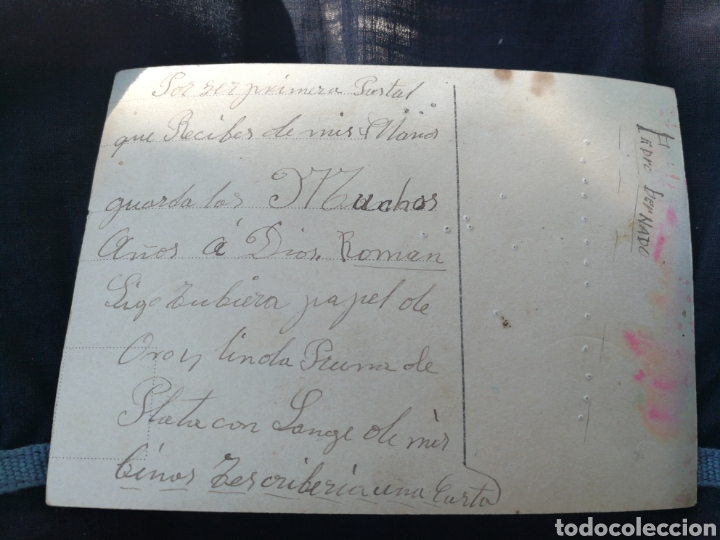 Por ser primera Postal
que Recibes de mis Manos
guarda los Muchos
Años á Dios. Román
Sigo Tubiera papel de
Oro y linda Pruma de
Plata con Sange de mis
Cenos Tescriberia una Carta
PEDRO BERNADO
todocoleccion
todocoleccion.net